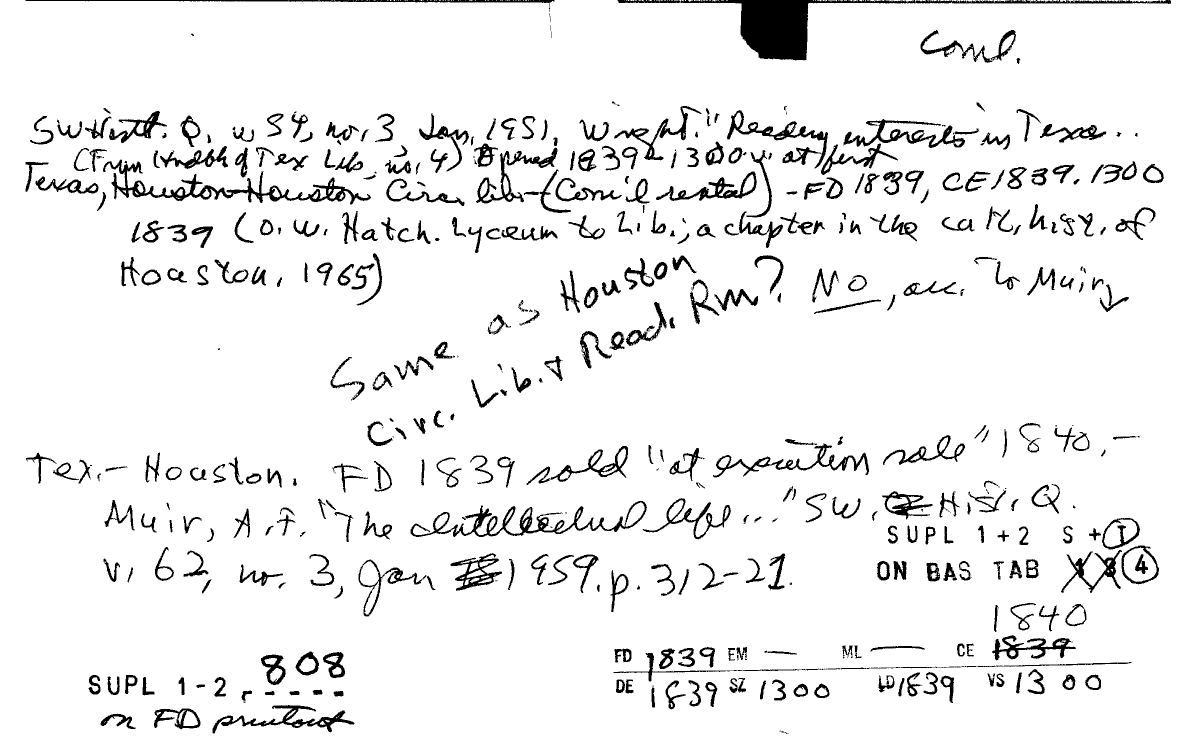 Coml.
SW Hist. Q, v 54, no. 3 Jan, 1951, Wright. "Reading interests in Texas..
(From Hndbk of Tex Lib, no. 4) Opened 1839 - 1300 v. at first
Texas, Houston-Houston Circ. lib-(Com'l rental) - FD 1839, CE 1839. 1300
1839 (O. W. Hatch. Lyceum to Lib.; a chapter in the cult. hist. of
Houston, 1965)
Same as Houston
Circ. Lib. & Read. Rm? NO, acc. to Muir
Tex.- Houston. FD 1839 sold "at execution sale" 1840,-
Muir, A.F. "The intellectual life..." SW. Hist. Q.
v. 62, no. 3, Jan 1959. p. 312-21.
SUPL 1+2 S + I
ON BAS TAB 4
1840
FD 1839 EM — ML — CE 1839
DE 1839 SZ 1300 LD 1839 VS 1300
SUPL 1-2, 808
on FD printout